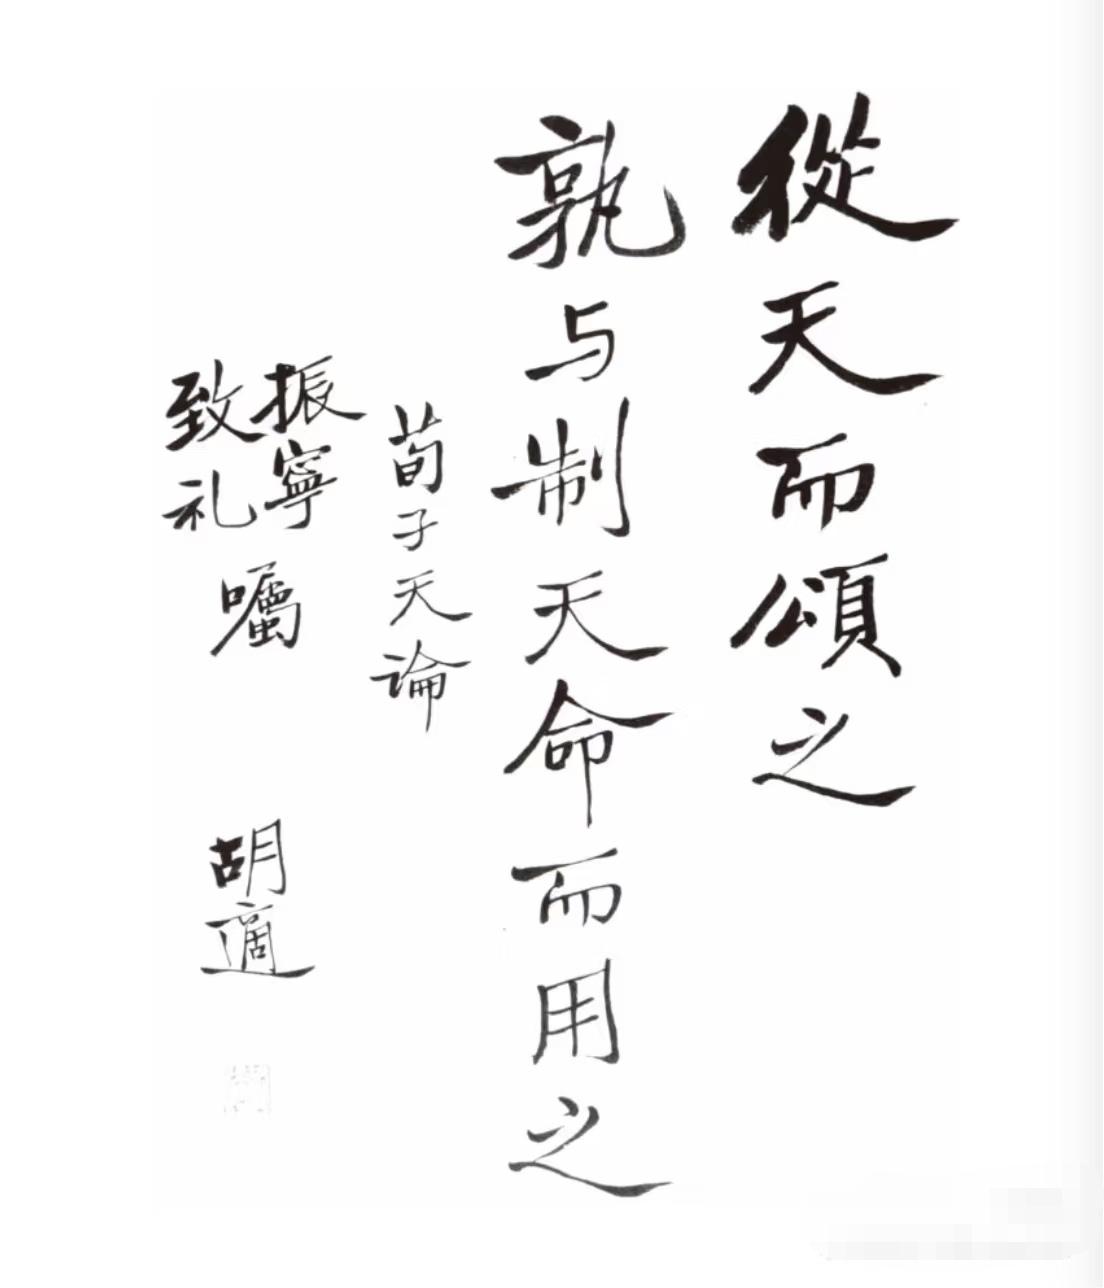 從天而頌之
孰与制天命而用之
荀子天論
振寧
致礼
囑
胡適